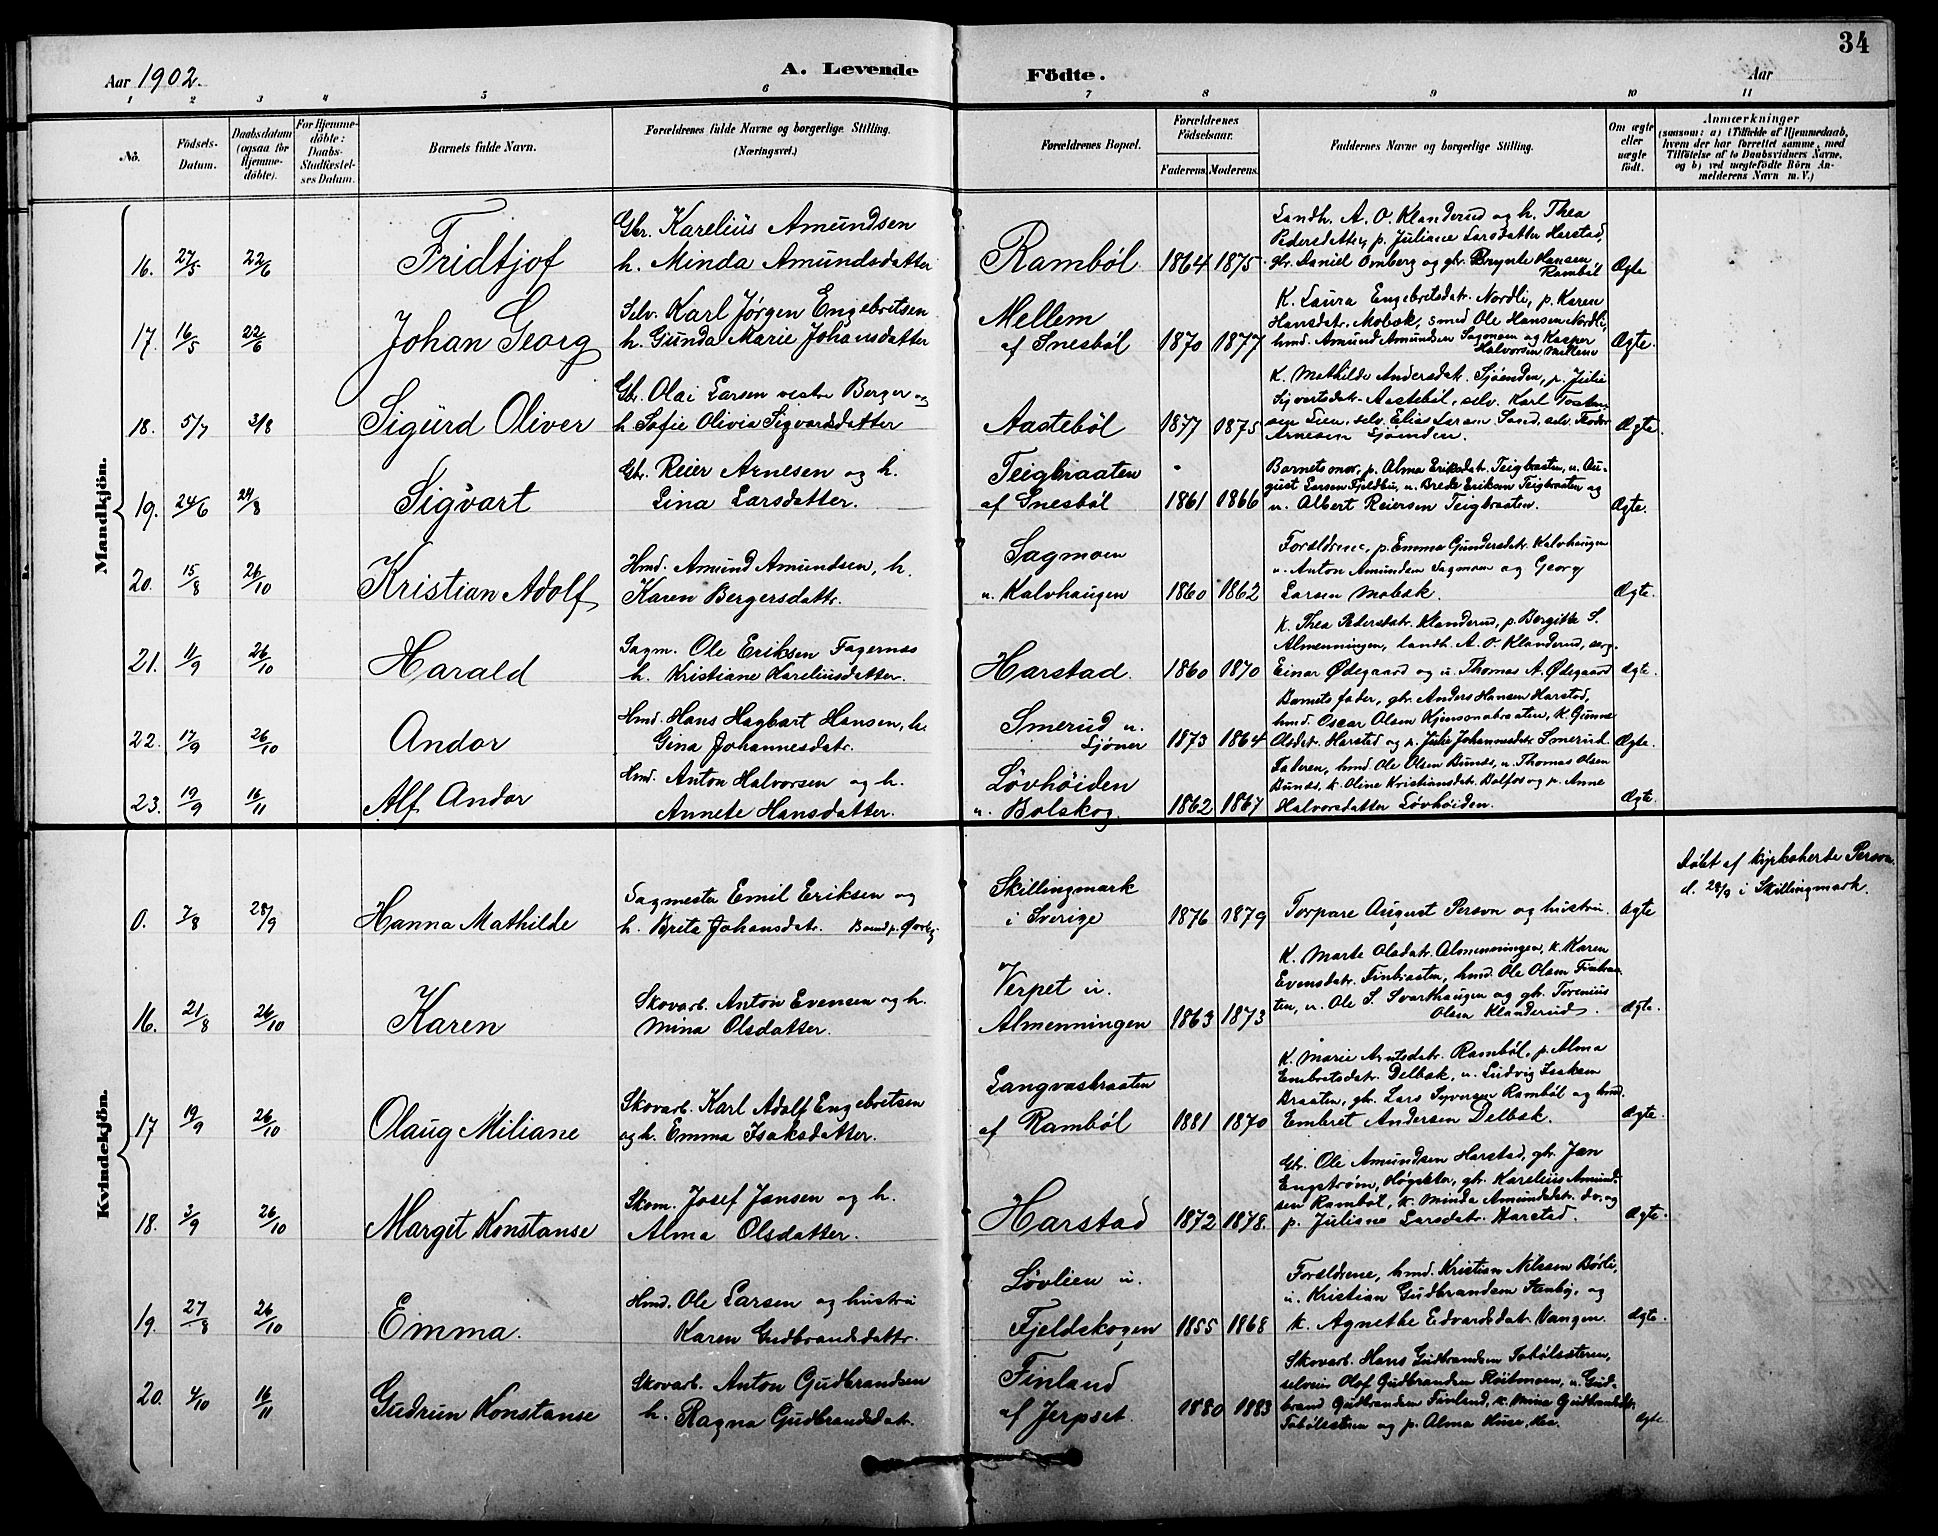 34
Aar 1902.
A. Levende
Födte.
Aar
1 2 3 4 5 6 7 8 9 10 11
No.
Födsels-
Datum.
Daabsdatum
(ogsaa for
Hjemme-
döbte).
For Hjemme-
döbte:
Daabs-
Stadfæstel-
ses Datum.
Barnets fulde Navn.
Forældrenes fulde Navne og borgerlige Stilling.
(Næringsvei.)
Forældrenes Bopæl.
Forældrenes
Födselsaar.
Faderens. Moderens.
Faddernes Navne og borgerlige Stilling.
Om ægte
eller
uægte
födt.
Anmærkninger
(saasom: a) i Tilfælde af Hjemmedaab,
hvem der har forrettet samme, med
Tilföielse af to Daabsvidners Navne,
og b) ved uægtefödte Börn An-
melderens Navn m. V.)
Mandkjön.
16. 27/5 22/6 Fridtjof
Gbr. Karelius Amundsen
h. Minda Amundsdatter
Rambøl 1864 1875
Landh. A. O. Klanderud og h. Thea
Pedersdatter, p. Juliane Larsdatter Harstad,
gbr. Daniel Omberg og gbr. Brynte Hansen
Rambøl
Ægte
17. 16/5 22/6 Johan Georg
Selv. Karl Jørgen Engebretsen
h. Gunda Marie Johansdatter
Mellem
af Snesbøl 1870 1877
K. Laura Engebretsdatr. Nordli, p. Karen
Hansdatr. Mobæk, smed Ole Hansen Nordli,
hmd. Amund Amundsen Sagmoen og Kasper
Halvorsen Mellem
Ægte.
18. 5/7 3/8 Sigurd Oliver
Gbr. Olai Larsen vestre Berger og
h. Sofie Olivia Sigvardsdatter
Aastebøl 1877 1875
K. Mathilde Andersdatr. Sjøenden, p. Julie
Sivertsdatr. Aastebøl, selv. Karl Tosten-
sen Lien, selv. Elias Larsen Sand, selv. Teodor
Arnesen Sjøenden.
Ægte.
19. 24/6 24/8 Sigvart
Gbr. Reier Arnesen og h.
Lina Larsdatter.
Teigbraaten
af Snesbøl 1861 1866
Barnets mor, p. Alma Eriksdatr. Teigbraaten, u. Au-
gust Larsen Fjeldbu, u. Brede Eriksen Teigbraaten og
u. Albert Reiersen Teigbraaten.
Ægte.
20. 15/8 26/10 Kristian Adolf
Hmd. Amund Amundsen, h.
Karen Bergersdattr.
Sagmoen
u. Kalvhaugen 1860 1862
Forældrene, p. Emma Gundersdatr. Kalvhaugen
u. Anton Amundsen Sagmoen og Georg
Larsen Mobæk.
Ægte.
21. 11/9 26/10 Harald
Sagm. Ole Eriksen Fagernæs
h. Kristiane Kareliusdatter.
Harstad. 1860 1870
K. Thea Pedersdatr. Klanderud, p. Bergitte S.
Almenningen, landh. A. O. Klanderud, serg.
Einar Ødegaard og u. Thomas A. Ødegaard
Ægte.
22. 17/9 26/10 Andor
Hmd. Hans Hagbart Hansen, h.
Gina Johannesdatr.
Smerud u.
Sjøner 1873 1864
Barnets fader, gbr. Anders Hansen Harstad,
hmd. Oscar Olsen Kjensonabraaten, K. Gunne
Olsdatr. Harstad og p. Julie Johannesdatr. Smerud.
Ægte.
23. 19/9 16/11 Alf Andor
Hmd. Anton Halvorsen og h.
Annete Hansdatter.
Løvhøiden
u. Bolskog. 1862 1867
Faderen, hmd. Ole Olsen Bunds, u. Thomas Olsen
Bunds, k. Oline Kristiansdatr. Bolfos og p. Anne
Halvorsdatter Løvhøiden.
Ægte.
Kvindekjön.
0. 7/8 28/9 Hanna Mathilde
Sagmester Emil Eriksen og
h. Brita Johansdatr.
Skillingmark
i Sverige 1876 1879
Torpare August Person og hustru.
Ægte
Døbt af kyrkoherde Person
d. 28/9 i Skillingmark.
16. 21/8 26/10 Karen
Skovarb. Anton Evensen og h.
Mina Olsdatter.
Verpet u.
Almenningen 1863 1873
K. Marte Olsdatr. Almenningen, K. Karen
Evensdatr. Finbraaten, hmd. Ole Olsen Finbraa-
ten, u. Ole S. Svarthaugen og gbr. Torenius
Olsen Klanderud.
Ægte.
17 19/9 26/10 Olaug Miliane
Skovarb. Karl Adolf Engebretsen
og h. Emma Isaksdatter.
Langvasbraaten
af Rambøl 1881 1870
K. Marie Arntsdatr. Rambøl, p. Alma
Embretsdatr. Delbæk, u. Ludvig Isaksen
Braaten, gbr. Lars Syversen Rambøl og hmd.
Embret Andersen Delbæk.
Ægte.
18. 3/9 26/10 Marget Konstanse
Skom. Josef Jansen og h.
Alma Olsdatter.
Harstad 1872 1878.
Gbr. Ole Amundsen Harstad, gbr. Jan
Engstrøm, Høgsæter, gbr. Karelius Amund-
sen Rambøl, k. Minda Amundsdatr. do. og
p. Juliane Larsdatr. Harstad.
Ægte.
19. 27/8 26/10 Emma.
Hmd. Ole Larsen og hustru
Karen Gudbrandsdattr.
Løvlien u.
Fjeldskogen 1855 1868
Forældrene, hmd. Kristian Nilssen Børli,
u. Kristian Gudbrandsen Stenby, og
k. Agnethe Edvardsdatr. Vangen.
Ægte.
20. 4/10 16/11 Gudrun Konstanse
Skovarb. Anton Gudbrandsen
h. Ragna Gudbrandsdatr.
Finland
af Jerpset. 1880 1883
Skovarb. Hans Gudbrandsen Tobølsæteren,
selveier Olof Gudbrandsen Røitmoen, u. Gud-
brand Gudbrandsen Finland, k. Mina Gudbrandsdtr.
Tobølsæteren og p. Alma Huse, Mea.
Ægte.